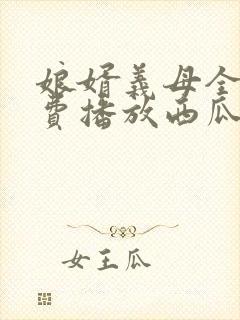 娘婿義母全
費播放西瓜
女王瓜